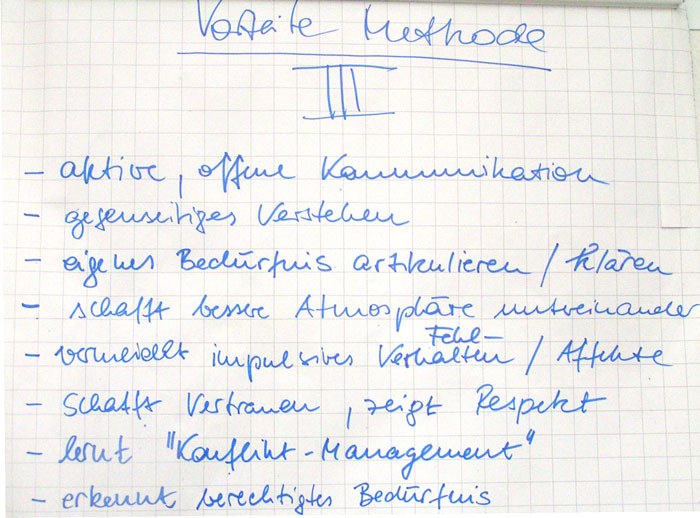 Vorteile Methode
III
- aktive, offene Kommunikation
- gegenseitiges Verstehen
- eigenes Bedürfnis artikulieren / klären
- schafft bessere Atmosphäre untereinander
- vermeidet impulsives Fehl-Verhalten / Affekte
- schafft Vertrauen, zeigt Respekt
- lernt "Konflikt-Management"
- erkennt berechtigtes Bedürfnis